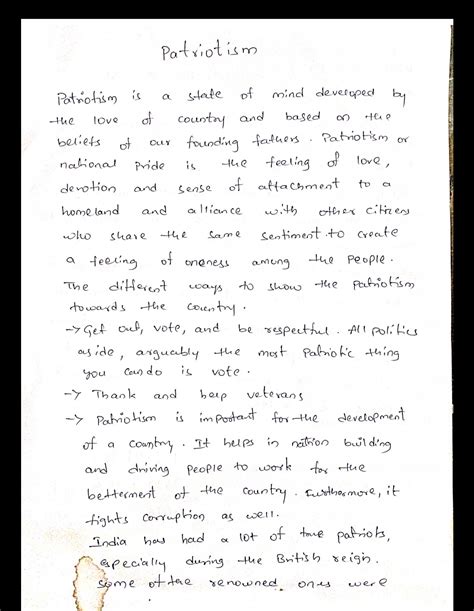 Patriotism
Patriotism is a state of mind developed by
the love of country and based on the
beliefs of our founding fathers. Patriotism or
national pride is the feeling of love,
devotion and sense of attachment to a
homeland and alliance with other citizens
who share the same sentiment to create
a feeling of oneness among the people.
The different ways to show the Patriotism
towards the country.
→ Get out, vote, and be respectful. All politics
aside, arguably the most Patriotic thing
you can do is vote.
→ Thank and help veterans
→ Patriotism is important for the development
of a country. It helps in nation building
and driving people to work for the
betterment of the country. Furthermore, it
fights corruption as well.
India has had a lot of true patriots,
especially during the British reign.
Some of the renowned ones were